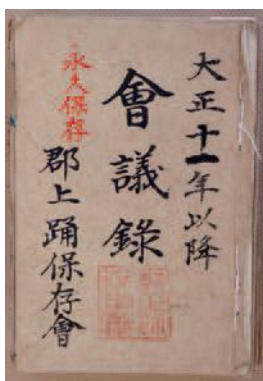 大正十一年以降
會議錄
永久保存
郡上踊保存會